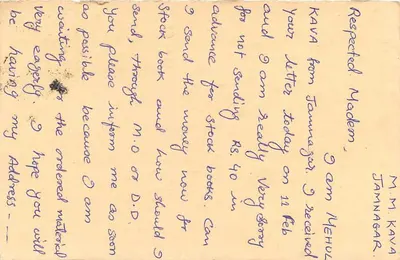 M. M. KAVA
JAMNAGAR.
Respected Madem,
I am MEHUL
KAVA from Jamnagar. I received
your letter today on 11 Feb
and I am really very sorry
for not sending Rs. 40 in
advance for stock books. Can
I send the money now for
stock book and how should I
send, through M.O or D.D.
You please inform me as soon
as possible because I am
waiting for the ordered material
very eagerly. I hope you will
be having my Address - -